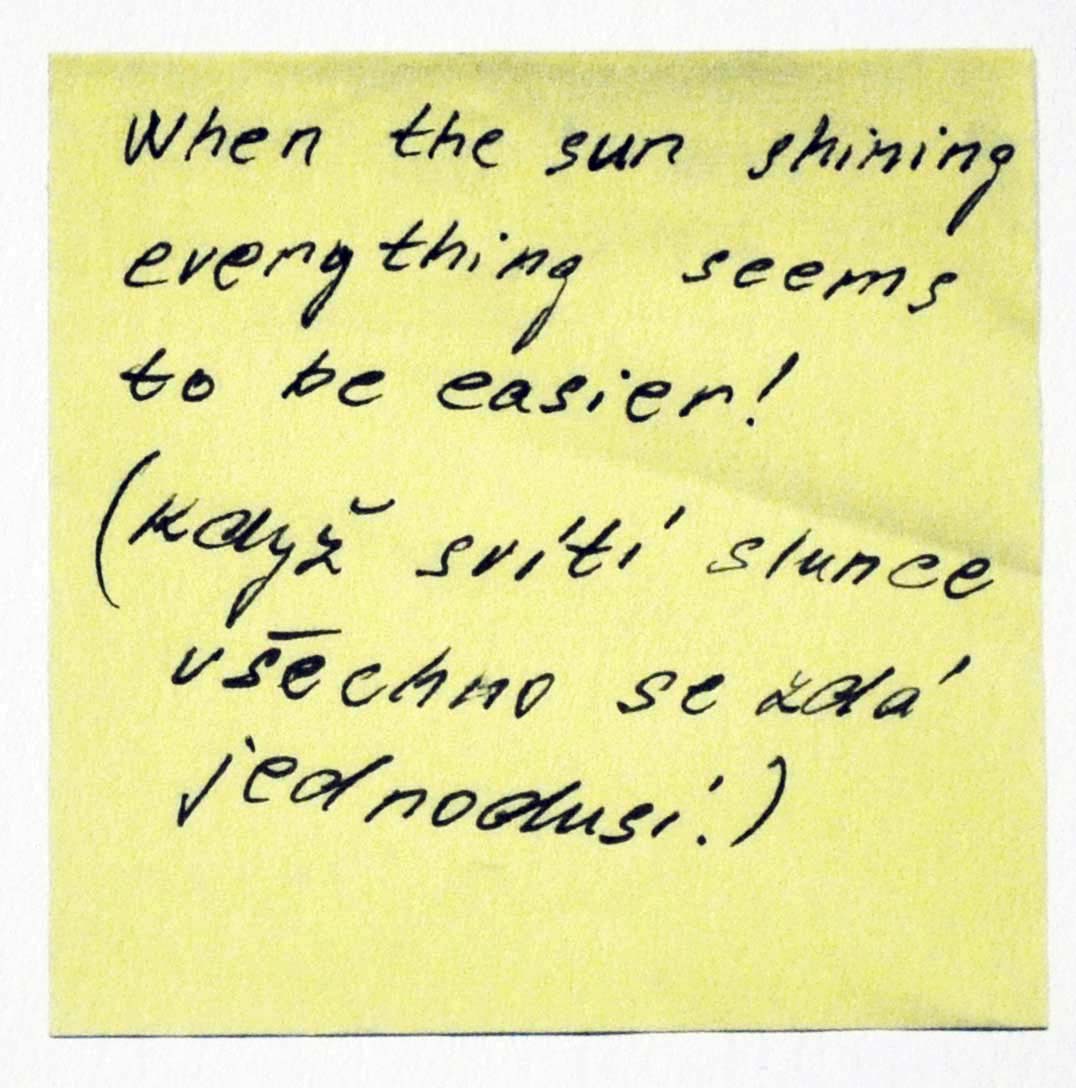 When the sun shining
everything seems
to be easier!
(Když svítí slunce
všechno se zdá
jednodusí.)